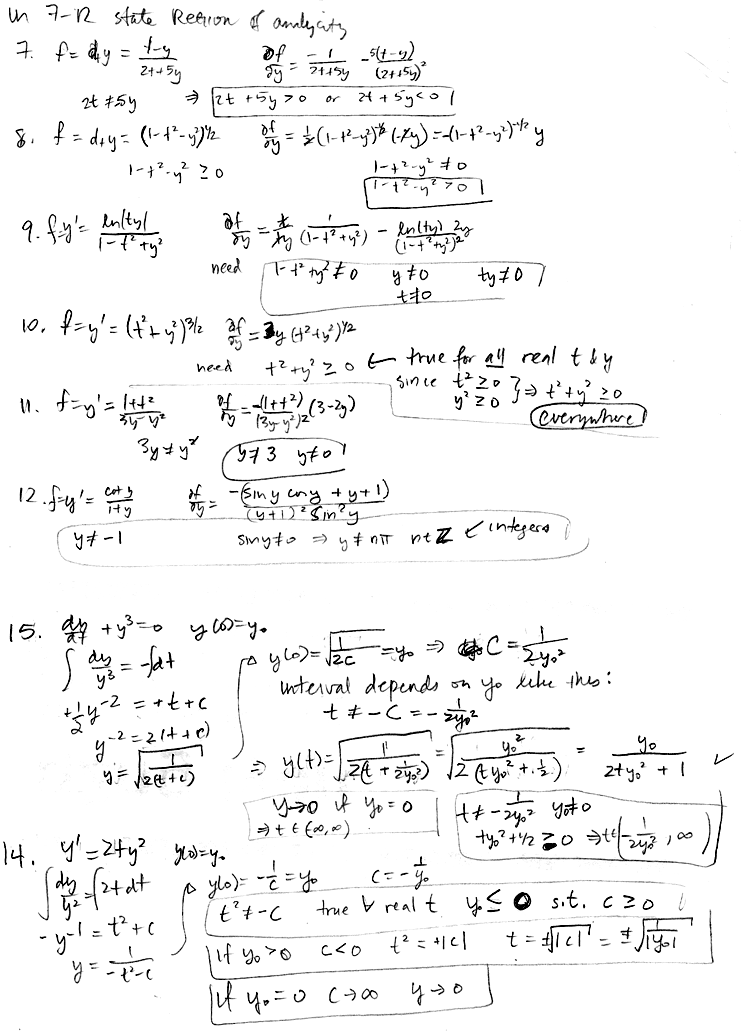 In 7-12 state Region of analycity
7. f = d+y = t-y / 2t+5y   ∂f/∂y = -1 / 2t+5y - 5(t-y) / (2t+5y)²
2t ≠ 5y ⇒ 2t + 5y > 0 or 2t + 5y < 0
8. f = d+y = (1-t²-y²)^1/2   ∂f/∂y = 1/2 (1-t²-y²)^-1/2 (-2y) = -(1-t²-y²)^-1/2 y
1-t²-y² ≥ 0   1-t²-y² ≠ 0
1-t²-y² > 0
9. f=y' = ln|ty| / 1-t²+y²   ∂f/∂y = t/ty (1 / (1-t²+y²)) - ln(ty) 2y / (1-t²+y²)²
need 1-t²+y² ≠ 0   y ≠ 0   ty ≠ 0
t ≠ 0
10. f=y' = (t²+y²)^3/2   ∂f/∂y = 3y (t²+y²)^1/2
need t²+y² ≥ 0 ← true for all real t & y
since t² ≥ 0 y² ≥ 0 } ⇒ t²+y² ≥ 0
everywhere
11. f=y' = 1+t² / 3y-y²   ∂f/∂y = -(1+t²) / (3y-y²)² (3-2y)
3y ≠ y²   y ≠ 3 y ≠ 0
12. f=y' = cot y / 1+y   ∂f/∂y = -(sin y cos y + y + 1) / (y+1)² sin² y
y ≠ -1   sin y ≠ 0 ⇒ y ≠ nπ n ∈ Z ← integers
15. dy/dt + y³ = 0   y(0) = y₀
∫ dy/y³ = -∫dt
+1/2 y^-2 = +t + c
y^-2 = 2(t + c)
y = √(1 / 2(t+c))
y(0) = √(1/2c) = y₀ ⇒ C = 1 / 2y₀²
interval depends on y₀ like this:
t ≠ -C = -1 / 2y₀²
⇒ y(t) = √(1 / 2(t + 1/2y₀²)) = √(y₀² / 2(ty₀² + 1/2)) = y₀ / 2ty₀² + 1 ✓
y→0 if y₀ = 0
⇒ t ∈ (∞, ∞)
t ≠ -1/2y₀²   y₀ ≠ 0
ty₀² + 1/2 ≥ 0 ⇒ t ∈ (-1/2y₀², ∞)
14. y' = 2ty²   y(0) = y₀
∫ dy/y² = ∫2t dt
-y^-1 = t² + c
y = 1 / -t²-c
y(0) = -1/c = y₀   c = -1/y₀
t² ≠ -C   true ∀ real t   y₀ ≤ 0 s.t. c ≥ 0
if y₀ > 0   c < 0   t² = +|c|   t = ±√|c| = ±√(1/|y₀|)
if y₀ = 0   c → ∞   y → 0